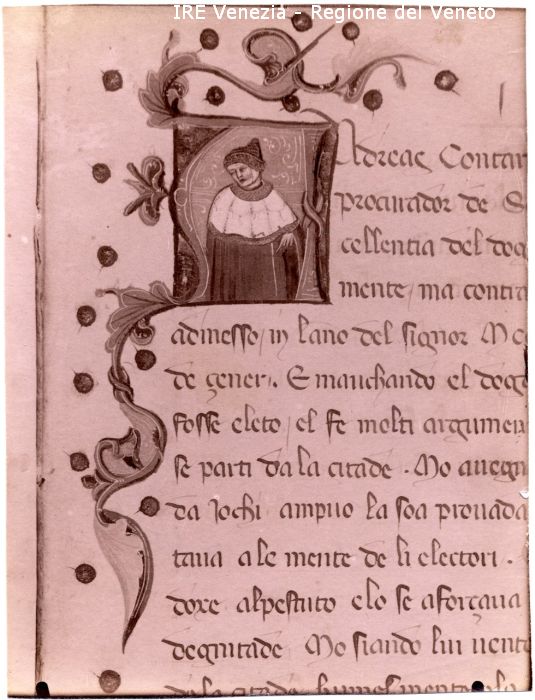 IRE Venezia - Regione del Veneto
Andreae Contar
procurador de S
cellentia del dog
mente, ma contra
admesso, in lano del signor M cc
de gener. E manchando el doge
fosse eleto, el fe molti argumen
se parti da la citade. Mo avegn
da lochi ampuo la soa provada
tava ale mente de li electori.
doxe alpestuto elo se aforçava
degnitade Mo siando lui vente